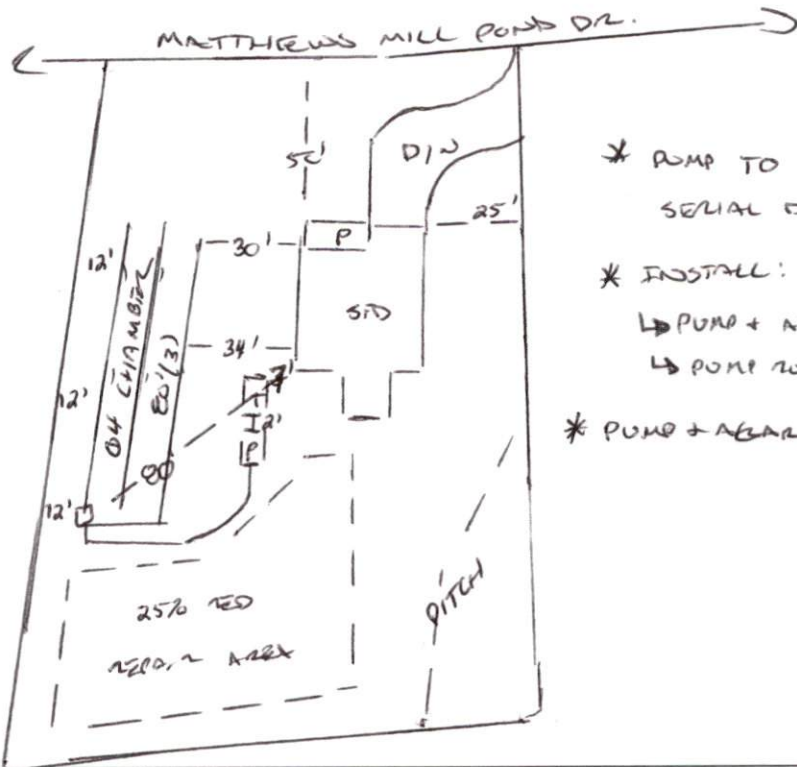 MATTHEWS MILL POND DR.
50'
D/W
25'
P
30'
SFD
34'
12'
Q4 CHAMBER
80'(3)
7'
12'
12'
P
80'
12'
25% RED
REPAIR AREA
DITCH
* PUMP TO
SERIAL
* INSTALL:
↳ PUMP + A
↳ PUMP
* PUMP +